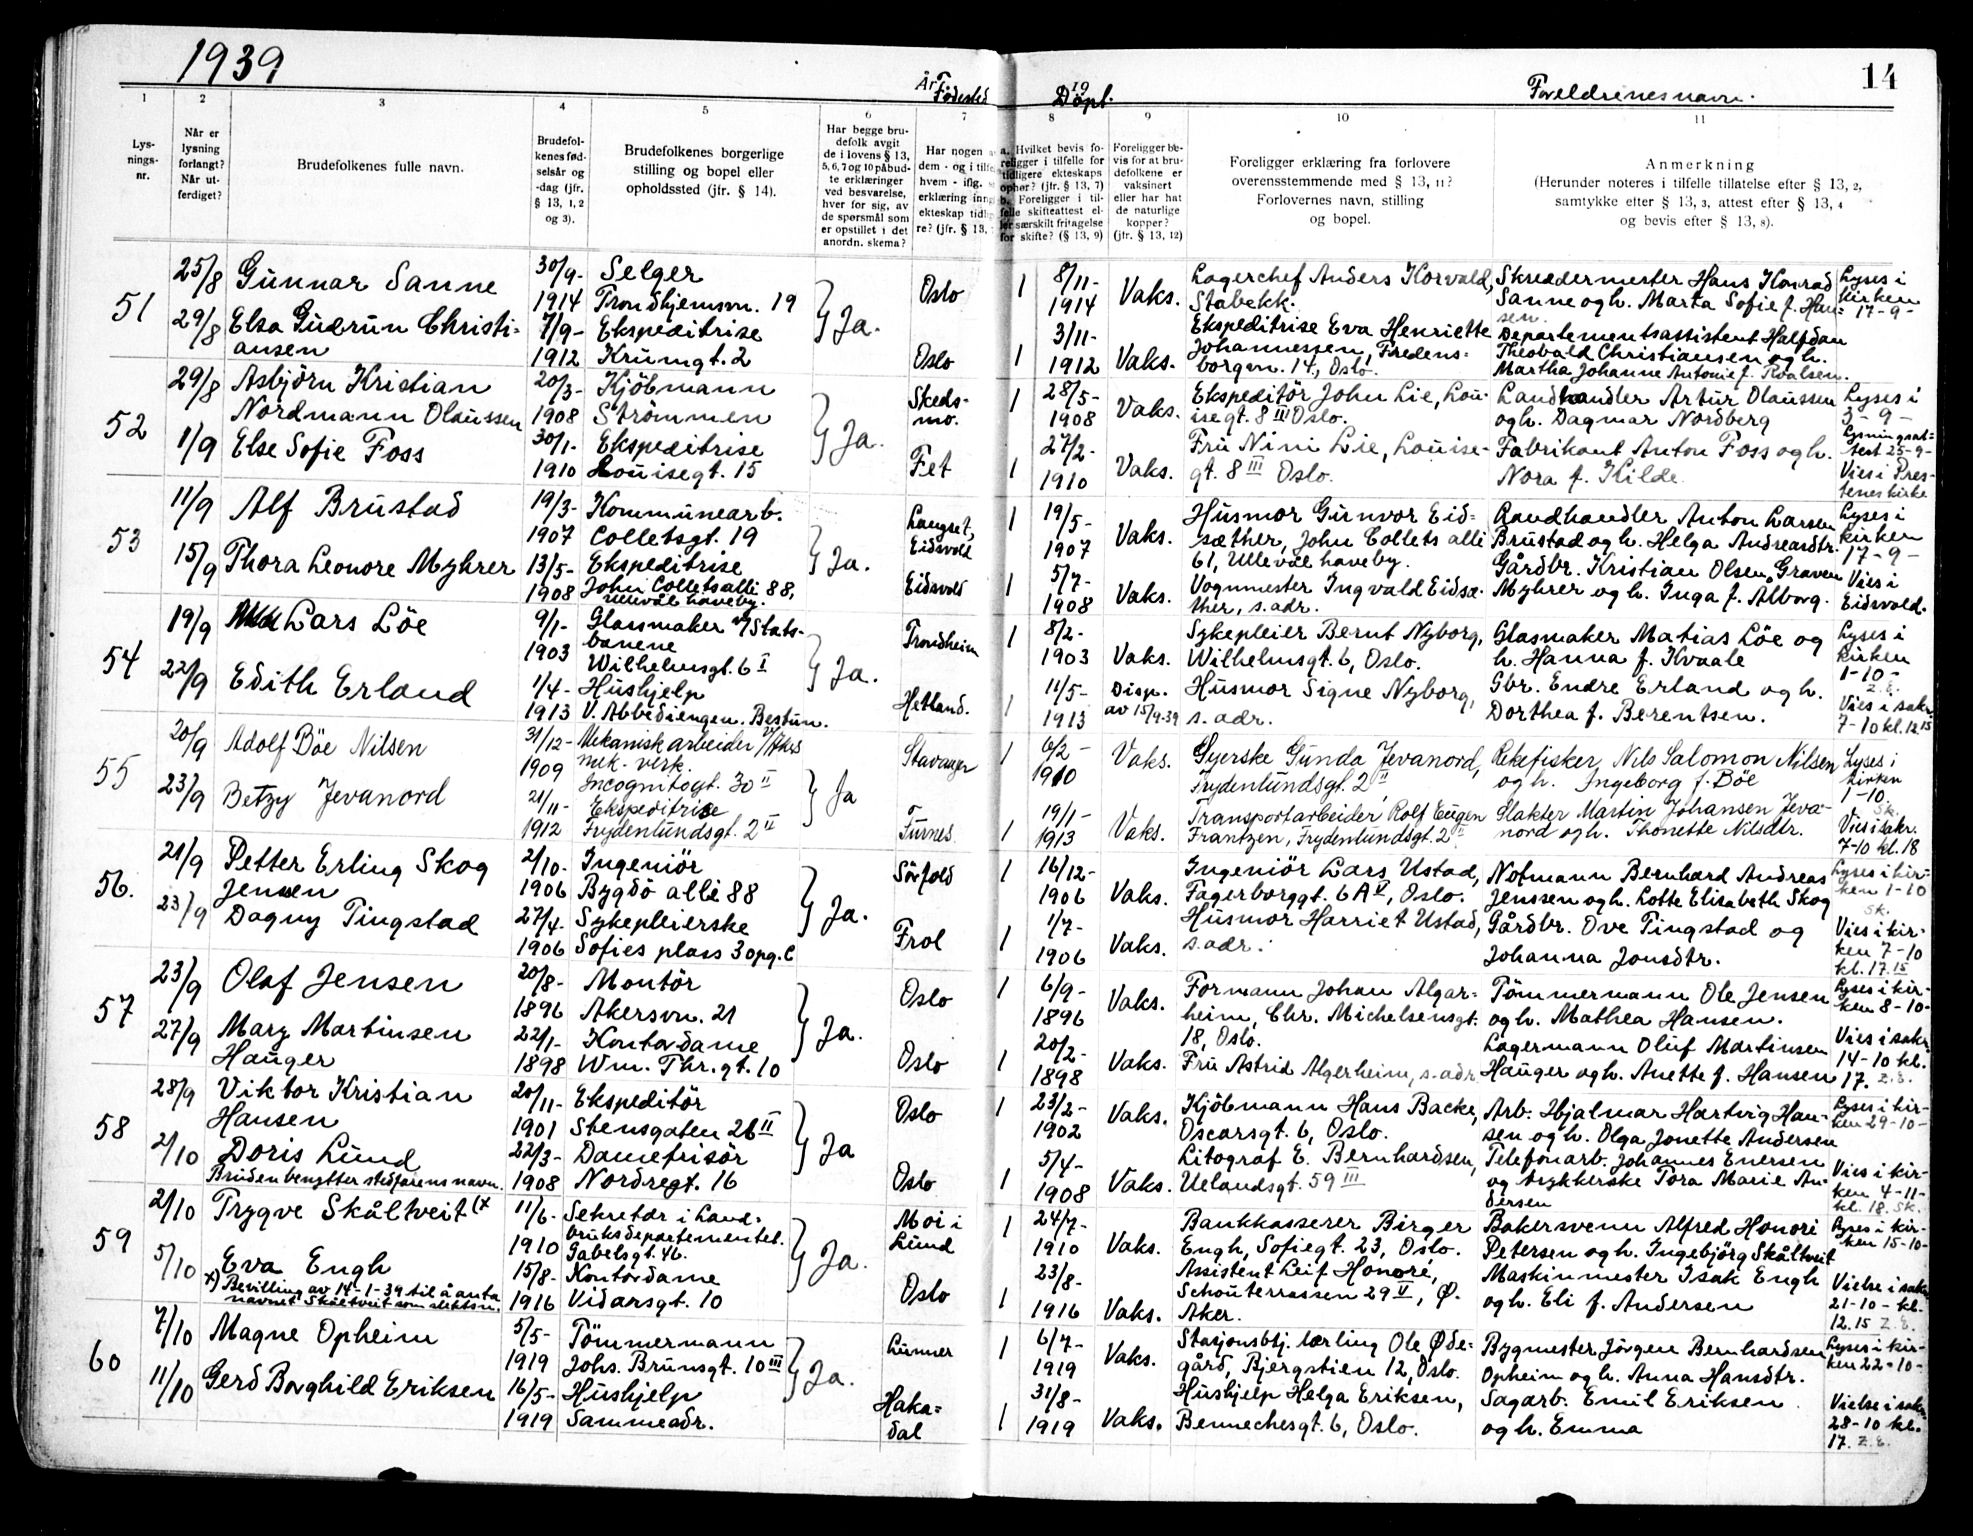 1939
År 19
Födested
Döpt.
Foreldrenes navn.
14
1 2 3 4 5 6 7 8 9 10 11
Lysningsnr.
Når er lysning forlangt? Når utferdiget?
Brudefolkenes fulle navn.
Brudefolkenes fødselsår og -dag (jfr. § 13, 1, 2 og 3).
Brudefolkenes borgerlige stilling og bopel eller opholdssted (jfr. § 14).
Har begge brudefolk avgit de i lovens § 13, 5, 6, 7 og 10 påbudte erklæringer ved besvarelse, hver for sig, av de spørsmål som er opstillet i det anordn. skema?
Har nogen a
dem - og i tilfe
hvem - iflg.
erklæring inng
ekteskap tidlig
re? (jfr. § 13,
a. Hvilket bevis foreligger i tilfelle for tidligere ekteskaps ophør? (jfr. § 13, 7)
b. Foreligger i tilfelle skifteattest eller særskilt fritagelse for skifte? (§ 13, 9)
Foreligger bevis for at brudefolkene er vaksinert eller har hat de naturlige kopper? (jfr. § 13, 12)
Foreligger erklæring fra forlovere overensstemmende med § 13, 11? Forlovernes navn, stilling og bopel.
Anmerkning
(Herunder noteres i tilfelle tillatelse efter § 13, 2, samtykke efter § 13, 3, attest efter § 13, 4 og bevis efter § 13, 8).
51
25/8 Gunnar Sanne 30/9- 1914 Selger
Trondhjemsvn. 19
Ja.
Oslo 1 8/11- 1914 Vaks. Lagerchef Anders Korvald,
Stabekk.
Skreddermester Hans Konrad
Sanne og h. Marta Sofie f. Hansen.
Lyses i
kirken
17-9-
29/8 Elsa Gudrun Christiansen 7/9- 1912 Ekspeditrise
Krumgt. 2
Oslo 1 3/11- 1912 Vaks. Ekspeditrise Eva Henriette
Johannessen, Fredensborgvn. 14, Oslo.
Departementsassistent Halfdan
Theobald Christiansen og h.
Martha Johanne Antonie f. Roalsen.
52
29/8 Asbjörn Kristian
Nordmann Olaussen 20/3- 1908 Kjöbmann
Strömmen
Ja.
Skedsmo. 1 28/5- 1908 Vaks. Ekspeditör John Lie, Louisegt. 8 III Oslo.
Landhandler Artur Olaussen
og h. Dagmar Nordberg
Lyses i
3-9-
Lysningsattest 25-9-
1/9 Else Sofie Foss 30/1- 1910 Ekspeditrise
Louisegt. 15
Fet 1 27/2- 1910 Vaks. Fru Nini Lie, Louisegt. 8 III Oslo.
Fabrikant Anton Foss og h.
Nora f. Kilde.
Vies i Prestenes kirke
53
11/9 Alf Brustad 19/3- 1907 Kommunearb.
Colletsgt. 19
Ja.
Langset,
Eidsvold 1 19/5- 1907 Vaks. Husmor Gunvor Eidsæther, John Collets alle
61, Ullevål haveby.
Landhandler Anton Larsen
Brustad og h. Helga Andreasdtr.
Lyses i
kirken
17-9-
15/9 Thora Leonore Myhrer 13/5- 1908 Ekspeditrise
John Colletsalle 88,
Ullevål haveby.
Eidsvold 1 5/7- 1908 Vaks. Vognmester Ingvald Eidsæther, s. adr.
Gårdbr. Kristian Olsen Graven
Myhrer og h. Inga f. Alborg.
Vies i
Eidsvold.
54
19/9 Lars Löe 9/1- 1903 Glassmaker v/Statsbanene
Wilhelmsgt. 6 I
Ja.
Trondheim 1 8/2- 1903 Vaks. Sykepleier Bernt Nyborg,
Wilhelmsgt. 6, Oslo.
Glasmaker Matias Löe og
h. Hanna f. Kvaale
Lyses i
kirken
1-10-
Z.E.
22/9 Edith Erland 1/4- 1913 Hushjelp
V. Abbediengen. Bestun.
Hetland. 1 11/5- 1913 Disp.
av 15/9-39 Husmor Signe Nyborg,
s. adr.
Gbr. Endre Erland og h.
Dorthea f. Berentsen.
Vies i sakr.
7-10 kl. 12.15
55
20/9 Adolf Böe Nilsen 31/12- 1909 Mekanisk arbeider v/Akers
mek. verk.
Incognitogt. 30 II
Ja
Stavanger 1 6/2- 1910 Vaks. Syerske Gunda Jevanord,
Frydenlundsgt. 2 II
Rekefisker Nils Salomon Nilsen
og h. Ingeborg f. Böe
Lyses i
kirken
1-10.
Sk.
23/9 Betzy Jevanord 21/11- 1912 Ekspeditrise
Frydenlundsgt. 2 II
Furnes. 1 19/1- 1913 Vaks. Transportarbeider Rolf Eugen
Frantzen, Frydenlundsgt. 2 II
Slakter Martin Johansen Jevanord og h. Thonette Nilsdtr.
Vies i sakr.
7-10 kl. 18
56.
21/9 Petter Erling Skog
Jenssen 2/10- 1906 Ingeniör
Bygdö alle 88
Ja.
Sörfold 1 16/12- 1906 Vaks. Ingeniör Lars Ustad,
Fagerborggt. 6 A V, Oslo.
Nofmann Bernhard Andreas
Jenssen og h. Lotte Elisabeth Skog
Lyses i kirken 1-10
Sk.
23/9 Dagny Tingstad 27/4- 1906 Sykepleierske
Sofies plass 3 opg. C
Frol 1 1/7- 1906 Vaks. Husmor Harriet Ustad,
s. adr.
Gårdbr. Ove Tingstad og
Johanna Jonsdtr.
Vies i kirken 7-10
kl. 17.15
57
23/9 Olaf Jensen 20/8- 1896 Montör
Akersvn. 21
Ja.
Oslo 1 6/9- 1896 Vaks. Formann Johan Algarheim, Chr. Michelsensgt.
18, Oslo.
Tömmermann Ole Jensen
og h. Mathea Hansen.
Lyses i kirken 8-10-
27/9 Mary Martinsen
Hauger 22/1- 1898 Kontordame
Wm. Thr. gt. 10
Oslo 1 20/2- 1898 Vaks. Fru Astrid Algerheim, s. adr.
Lagermann Oluf Martinsen
Hauger og h. Anette f. Hansen
Vies i sakr.
14-10 kl.
17. Z.E.
58
28/9 Viktor Kristian
Hansen 20/11- 1901 Ekspeditör
Stensgaten 26 II
Ja
Oslo 1 23/2- 1902 Vaks. Kjöbmann Hans Backe,
Oscarsgt. 6, Oslo.
Arb. Hjalmar Hartvig Hansen og h. Olga Jonette Andersen
Lyses i kirken 29-10-
2/10 Doris Lund
Bruden benytter stedfarens navn. 22/3- 1908 Damefrisör
Nordregt. 16
Oslo 1 5/4- 1908 Vaks. Litograf E. Bernhardsen,
Uelandsgt. 59 III
Telefonarb. Johannes Enersen
og trykkerske Tora Marie Andersen
Vies i kirken 4-11-
kl. 18. Sk.
59
2/10 Trygve Skåltveit (x 11/6- 1910 Sekretær i Landbruksdepartementet.
Gabelsgt. 46.
Ja.
Moi i
Lund 1 24/7- 1910 Vaks. Bankkasserer Birger
Engh, Sofiegt. 23, Oslo.
Bakersvenn Alfred Honoré
Petersen og h. Ingebjörg Skåltveit
Lyses i kirken 15-10-
5/10 Eva Engh
x) Bevilling av 14-1-39 til å anta
navnet Skåltveit som slektsn. 15/8- 1916 Kontordame
Vidarsgt. 10
Oslo 1 23/8- 1916 Vaks. Assistent Leif Honoré,
Schouterrassen 29 V, Ø.
Aker.
Maskinmester Isak Engh
og h. Eli f. Andersen
Vielse i sakr.
21-10- kl.
12.15 Z.E.
60
7/10 Magne Opheim 5/5- 1919 Tömmermann
Johs. Brunsgt. 10 III
Ja.
Lunner 1 6/7- 1919 Vaks. Stasjonsbtj. lærling Ole Ødegård, Bjergstien 12, Oslo.
Bygmester Jörgen Bernhardsen
Opheim og h. Anna Hansdtr.
Lyses i kirken 22-10-
11/10 Gerd Borghild Eriksen 16/5- 1919 Hushjelp
Samme adr.
Hakadal 1 31/8- 1919 Vaks. Hushjelp Helga Eriksen,
Bennechesgt. 6, Oslo.
Sagarb. Emil Eriksen
og h. Emma
Vielse i sakr.
28-10 kl.
17. Z.E.